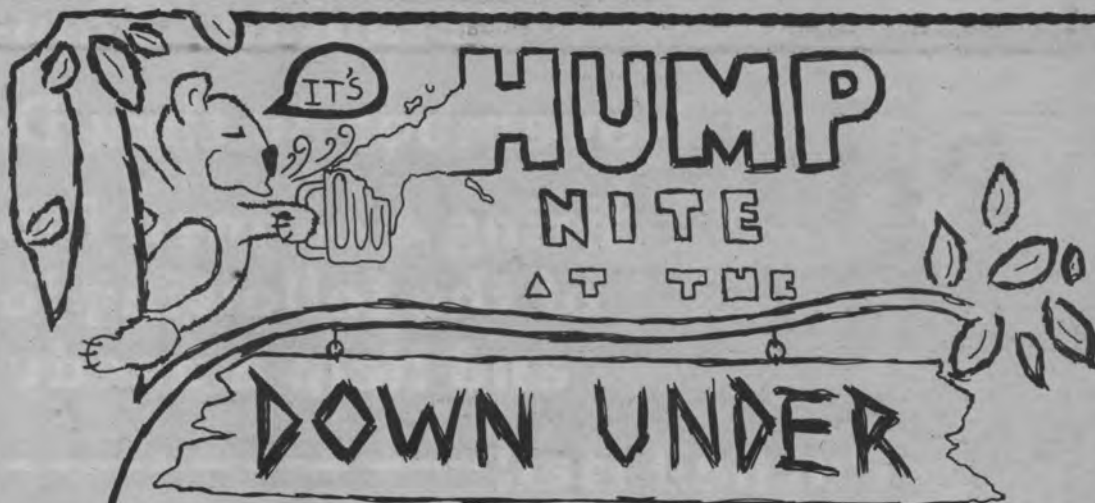 IT'S
HUMP
NITE
AT THE
DOWN UNDER